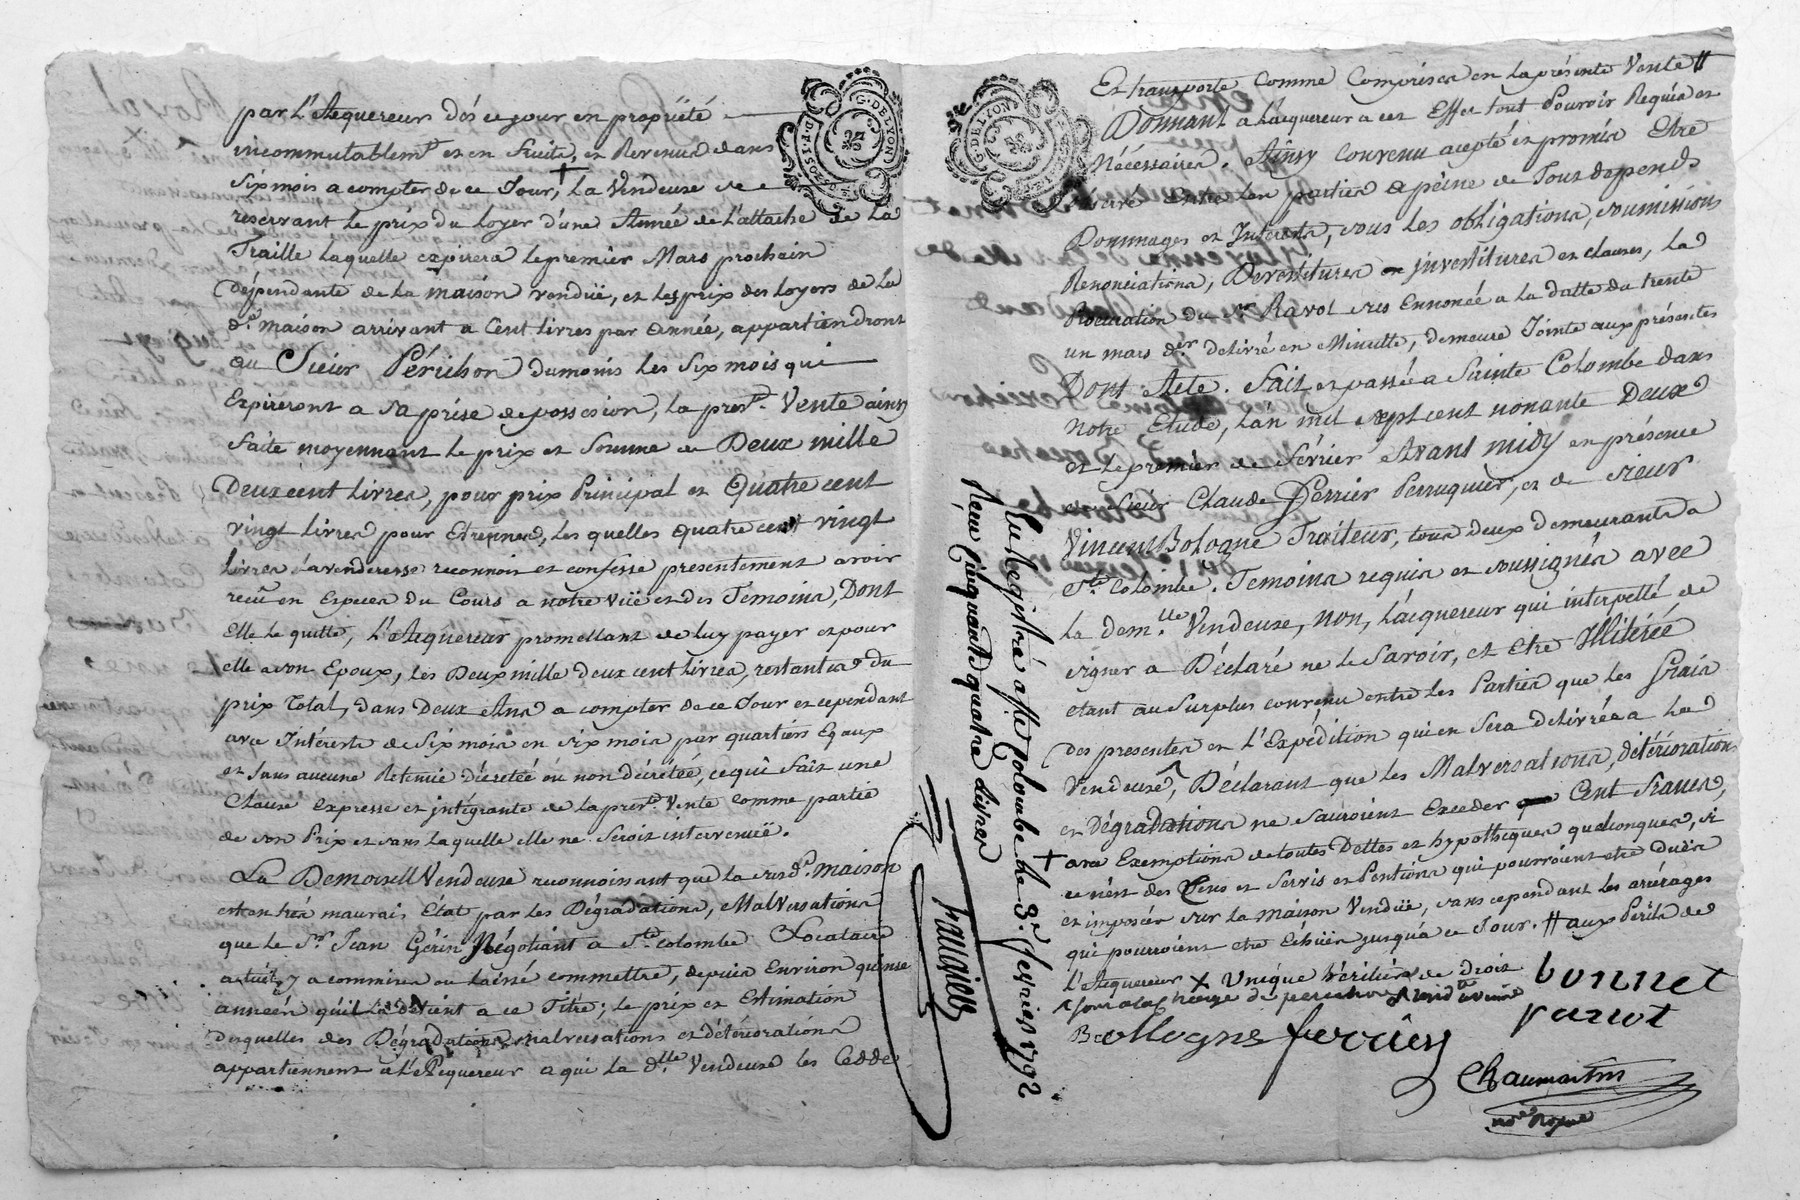 par L'Acquereur dès ce jour en propriëté
incommutablemt. et en fruits, et Revenus dans
Six mois a compter de ce Jour, † La Vendeuse se
reservant le prix du Loyer d'une Année de L'attache de La
Traille laquelle expirera le premier Mars prochain
dépendante de La maison vendüe, et les prix des loyers de La
de. maison arrivant a Cent livres par année, appartiendront
au Sieur Périchon du moins les Six mois qui
Expireront a sa prise de possession, la prest. Vente ainsi
faite moyennant le prix et Somme de Deux mille
Deux cent livres, pour prix Principal et Quatre cent
vingt livres pour Etrennes, les quelles quatre cent vingt
livres la venderesse reconnoit et confesse presentement avoir
recü en Especes du Cours a notre vüe et des Temoins, Dont
Elle Le quitte, L'Acquereur promettant de luy payer et pour
elle a son Epoux, les Deux mille deux cent livres, restantes du
prix Total, dans Deux Ans a compter de ce Jour et cependant
avec Intérests de Six mois en six mois par quartiers Egaux
et sans aucune Retenüe décretée ou non décretée, ce qui fait une
Clause expresse et intégrante de la prest. Vente comme partie
de son Prix et sans laquelle elle ne Seroit intervenüe.
La Demoiselle Vendeuse reconnoissant que la susde. maison
est en très mauvais Etat par les Dégradations, Malversations
que le Sr. Jean Gérin Négotiant a Ste. Colombe Locataire
actüel y a commises ou laissé commettre, depuis Environ quinse
années qu'il La détient a ce Titre; le prix et Estimation
desquelles des Dégradations, malversations et déteriorations
appartiennent a L'Acquereur a qui la dlle. Vendeuse les Cedde
Et transporte comme Comprises en la présente Vente //
Donnant a L'acquereur a cet Effet tout Pouvoir Requis et
Nécessaires. Ainsy convenu acepté et promis Etre
observé entre les parties a peine de Tous depends
Dommages et Interests, sous les obligations, soumissions
Renonciations, Devestitures et investitures et clauses, La
Procuration du sr. Ravot sus Ennoncée a la datte du trente
un mars der. delivré en Minutte, demeure Jointe aux présentes
Dont Acte. Fait et passé a Sainte Colombe dans
notre Etude, l'an mil sept cent nonante Deux
et le premier de Février Avant midy en présence
de Sieur Claude Perrier Perruquier, et de sieur
Vincent Bologne Traiteur, tous deux demeurants a
Ste. Colombe. Temoins requis et soussignés avec
La demlle. Vendeuse, non, L'acquereur qui interpellé de
signer a Déclaré ne le Savoir, et Etre Illiterée
etant au Surplus convenu entre les Parties que les fraix
des presentes et L'Expédition qui en Sera delivrée a La
Vendeuse ^, Déclarant que les Malversations, détériorations
et Dégradations ne sauroient Exceder Cent francs,
† avec Exemptions de toutes Dettes et hypotheques quelconques, si
ce n'est des Cens et Servis et Pentions qui pourroient etre dudis
et imposés sur la maison Vendüe, sans cependant les arérages
qui pourroient etre Echüs jusqu'a ce Jour. // aux Périls de
L'Acquereur X Unique héritière de droit
^ sont a la charge de perechon
bonnet
ravot
Bollogne ferrier
Chaumartin
nore Royal
Enregistré a Ste Colombe Le 3e. fevrier 1792
Reçu Cinquante quatre livres
G. DE LYON
G. DE LYON